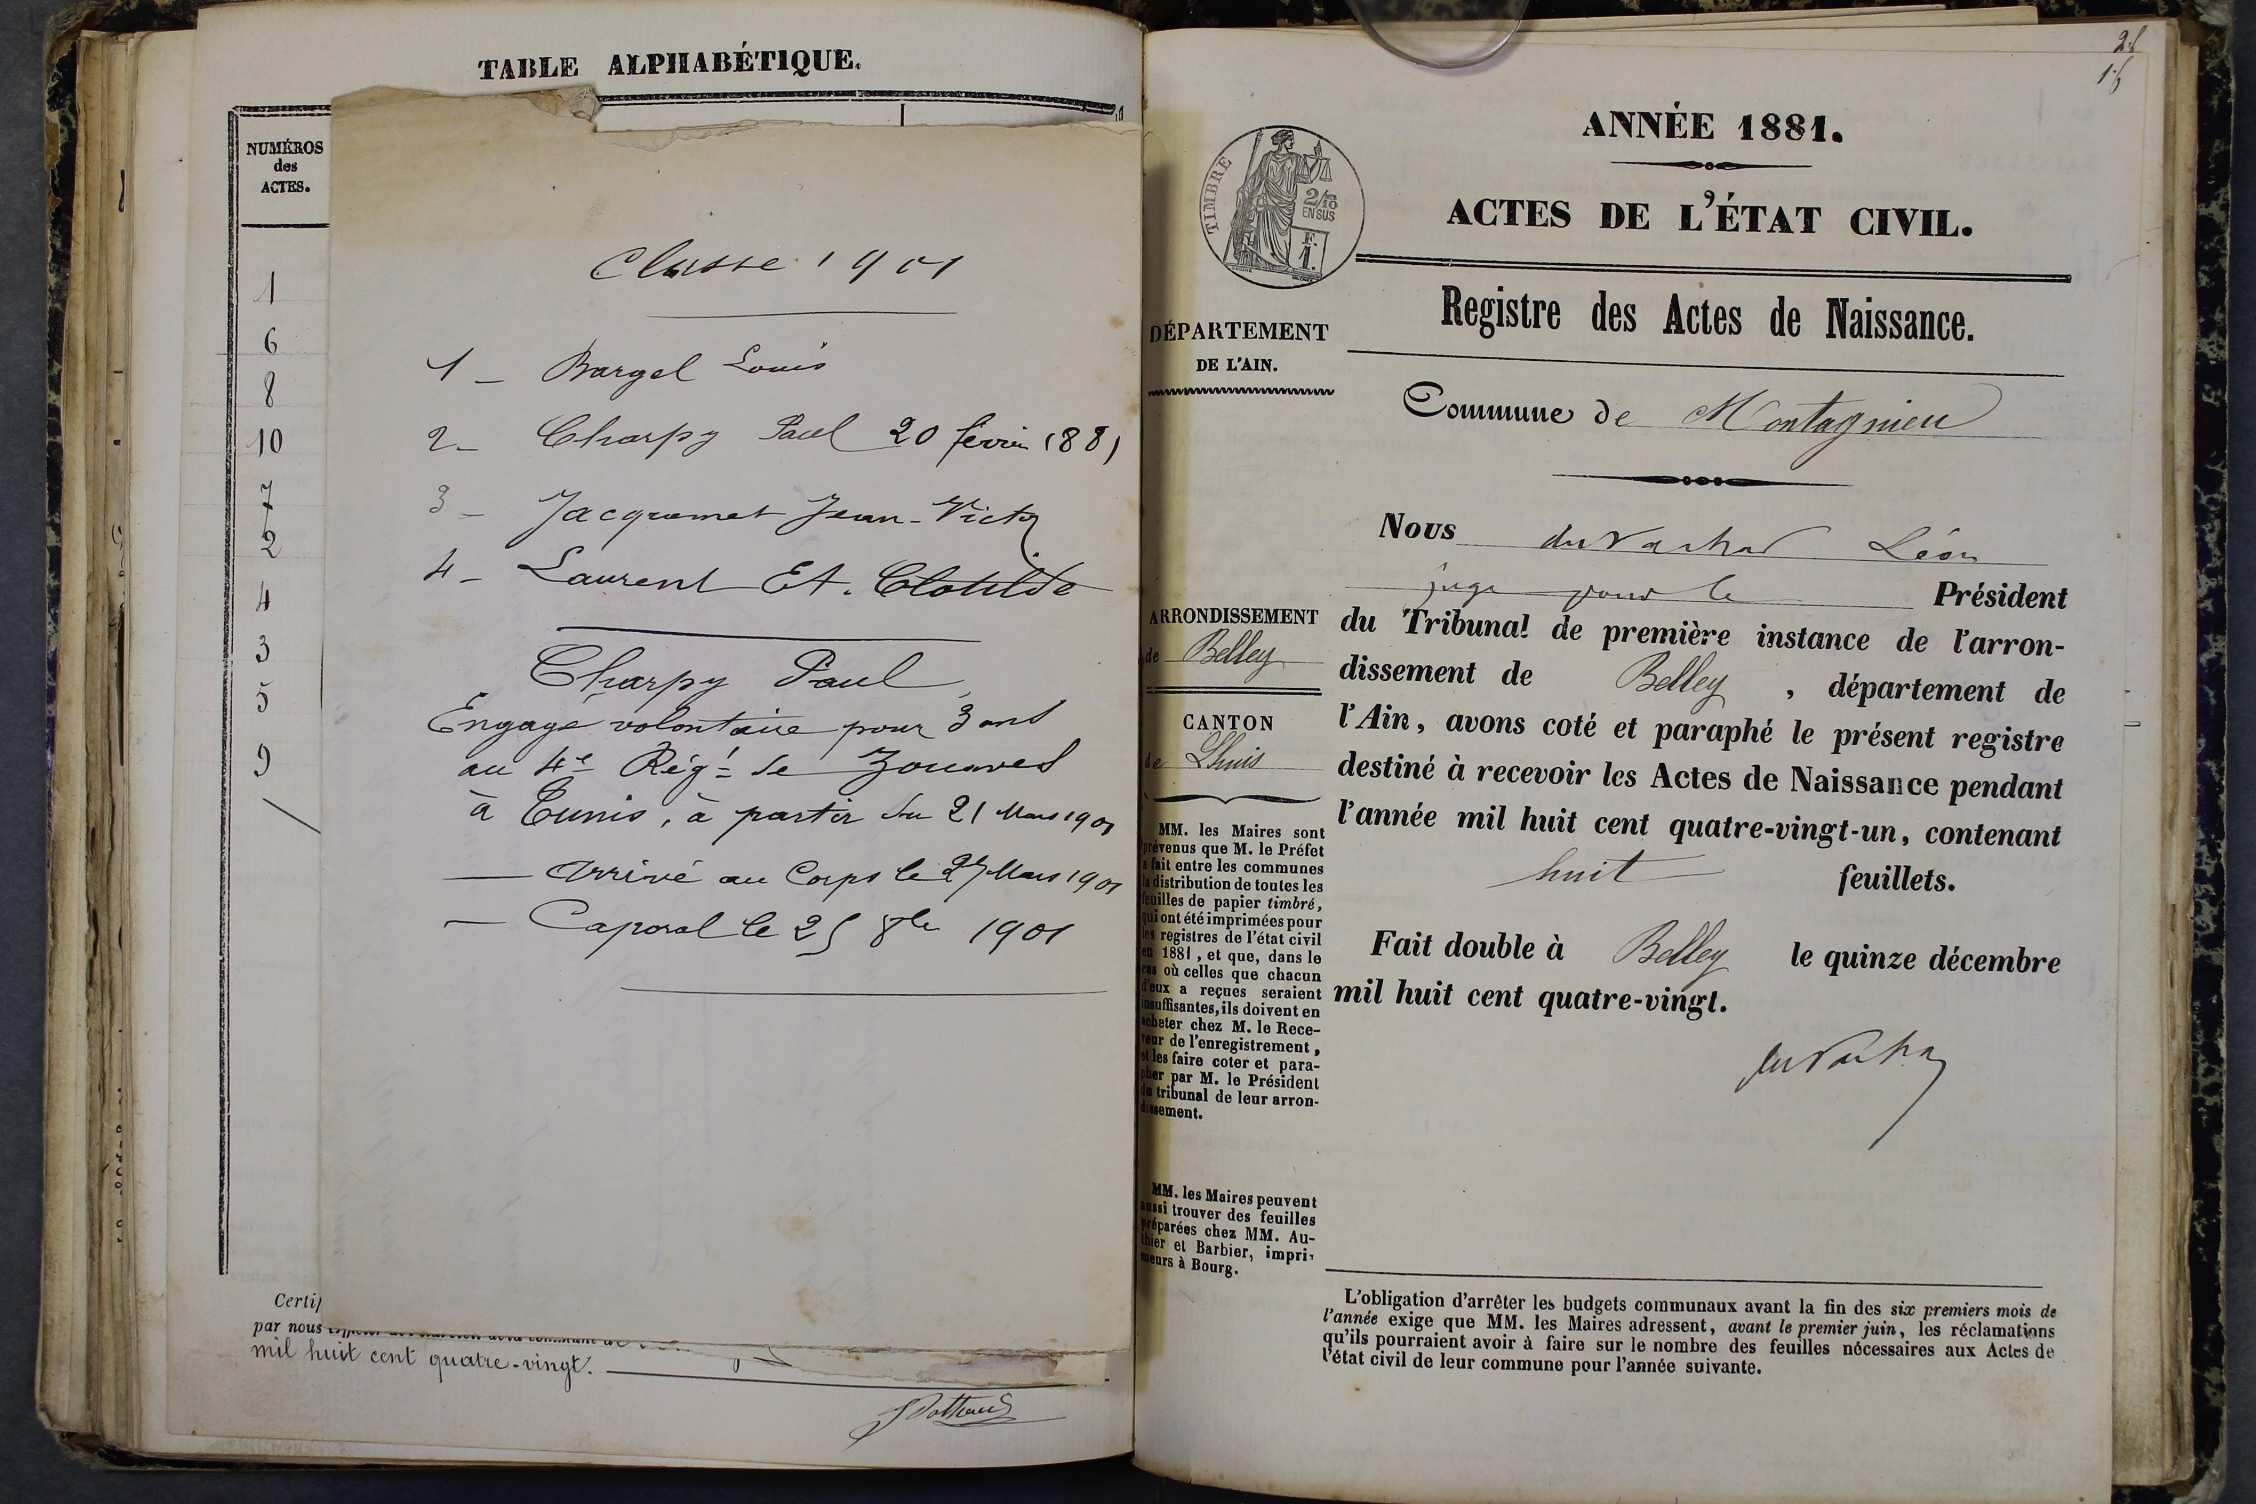 TABLE ALPHABÉTIQUE.
NUMÉROS
des
ACTES.
1
6
8
10
7
2
4
3
5
9
Classe 1901
1 - Bargel Louis
2 - Charpy Paul 20 février 1881
3 - Jacquemet Jean-Victor
4 - Laurent Et. Clotilde
Charpy Paul
Engagé volontaire pour 3 ans
au 4e Régt de Zouaves
à Tunis, à partir du 21 Mars 1901
— Arrivé au Corps le 27 Mars 1901
— Caporal le 25 8bre 1901
Certif
par nous
mil huit cent quatre-vingt.
28
ANNÉE 1881.
ACTES DE L'ÉTAT CIVIL.
TIMBRE
2/10
EN SUS
F.
1.
Registre des Actes de Naissance.
DÉPARTEMENT
DE L'AIN.
Commune de Montagnieu
ARRONDISSEMENT
de Belley
CANTON
de Lhuis
MM. les Maires sont
prévenus que M. le Préfet
a fait entre les communes
la distribution de toutes les
feuilles de papier timbré,
qui ont été imprimées pour
les registres de l'état civil
en 1881, et que, dans le
cas où celles que chacun
d'eux a reçues seraient
insuffisantes, ils doivent en
acheter chez M. le Rece-
veur de l'enregistrement,
et les faire coter et para-
pher par M. le Président
du tribunal de leur arron-
dissement.
MM. les Maires peuvent
aussi trouver des feuilles
préparées chez MM. Au-
thier et Barbier, impri-
meurs à Bourg.
Nous Léon
juge pour le Président
du Tribunal de première instance de l'arron-
dissement de Belley, département de
l'Ain, avons coté et paraphé le présent registre
destiné à recevoir les Actes de Naissance pendant
l'année mil huit cent quatre-vingt-un, contenant
huit feuillets.
Fait double à Belley le quinze décembre
mil huit cent quatre-vingt.
L'obligation d'arrêter les budgets communaux avant la fin des six premiers mois de
l'année exige que MM. les Maires adressent, avant le premier juin, les réclamations
qu'ils pourraient avoir à faire sur le nombre des feuilles nécessaires aux Actes de
l'état civil de leur commune pour l'année suivante.